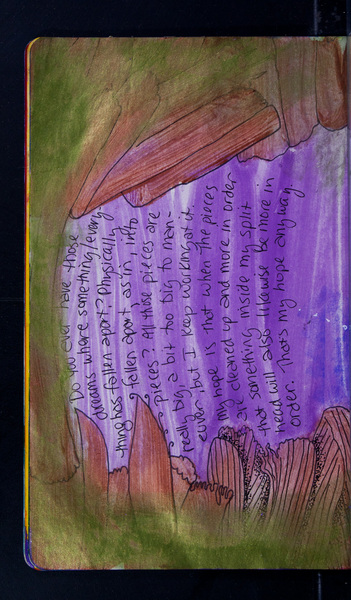 Do you ever have those
dreams where something/every
thing has fallen apart? Physically
fallen apart as in, into
pieces? All those pieces are
really big a bit too big to man-
euver but I keep working at it.
my hope is that when the pieces
are cleaned up and more in order
that something inside my split
head will also likwise be more in
order. Thats my hope anyway